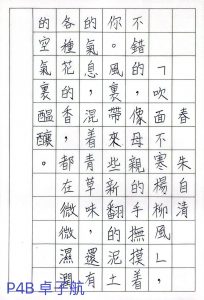 春 朱自清
「吹面不寒楊柳風」,
不錯的,像母親的手撫摸着
你。風裏帶來些新翻的泥土
的氣息,混着青草味,還有
各種花的香,都在微微濕潤
的空氣裏醞釀。
P4B 卓子航